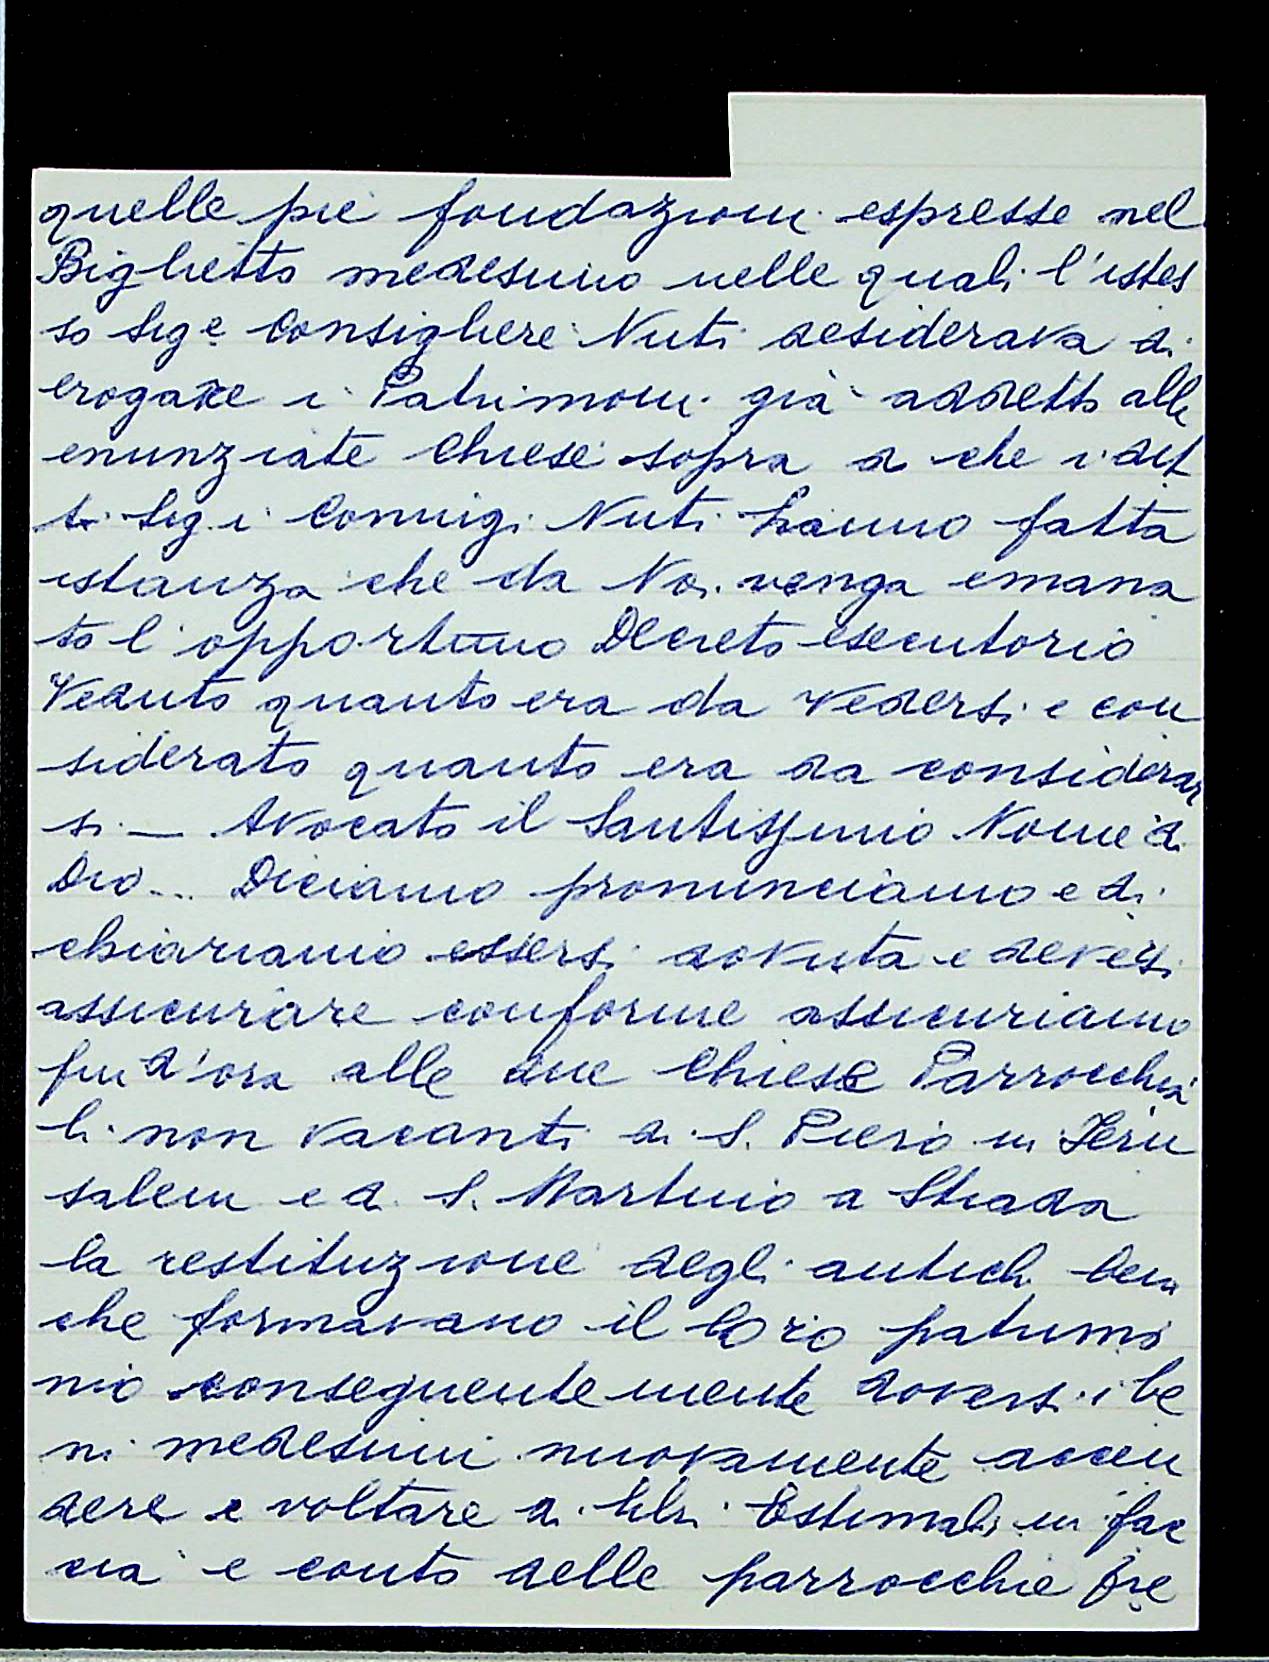 quelle pie fondazioni espresse nel
Biglietto medesimo nelle quali l'istes
so Sig.e Consigliere Nuti desiderava di
erogare i Patrimoni già addetti alle
enunziate Chiese sopra di che i det
ti Sig.i Coniugi Nuti hanno fatta
istanza che da Noi venga emana
to l'opportuno Decreto esecutorio
Veduto quanto era da Vedersi e con
siderato quanto era da considerar
si — Avocato il Santissimo Nome di
Dio... Diciamo pronunciamo e di
chiariamo essersi dovuta e deversi
assicurare conforme assicuriamo
fin d'ora alle due Chiese Parrocchia
li non vacanti di S. Piero in Jeru
salem e di S. Martino a Strada
la restituzione degli antichi beni
che formavano il loro patrimo
nio conseguentemente doversi i be
ni medesimi nuovamente accen
dere e voltare ai libri Estimali in fac
cia e conto delle parrocchie pre